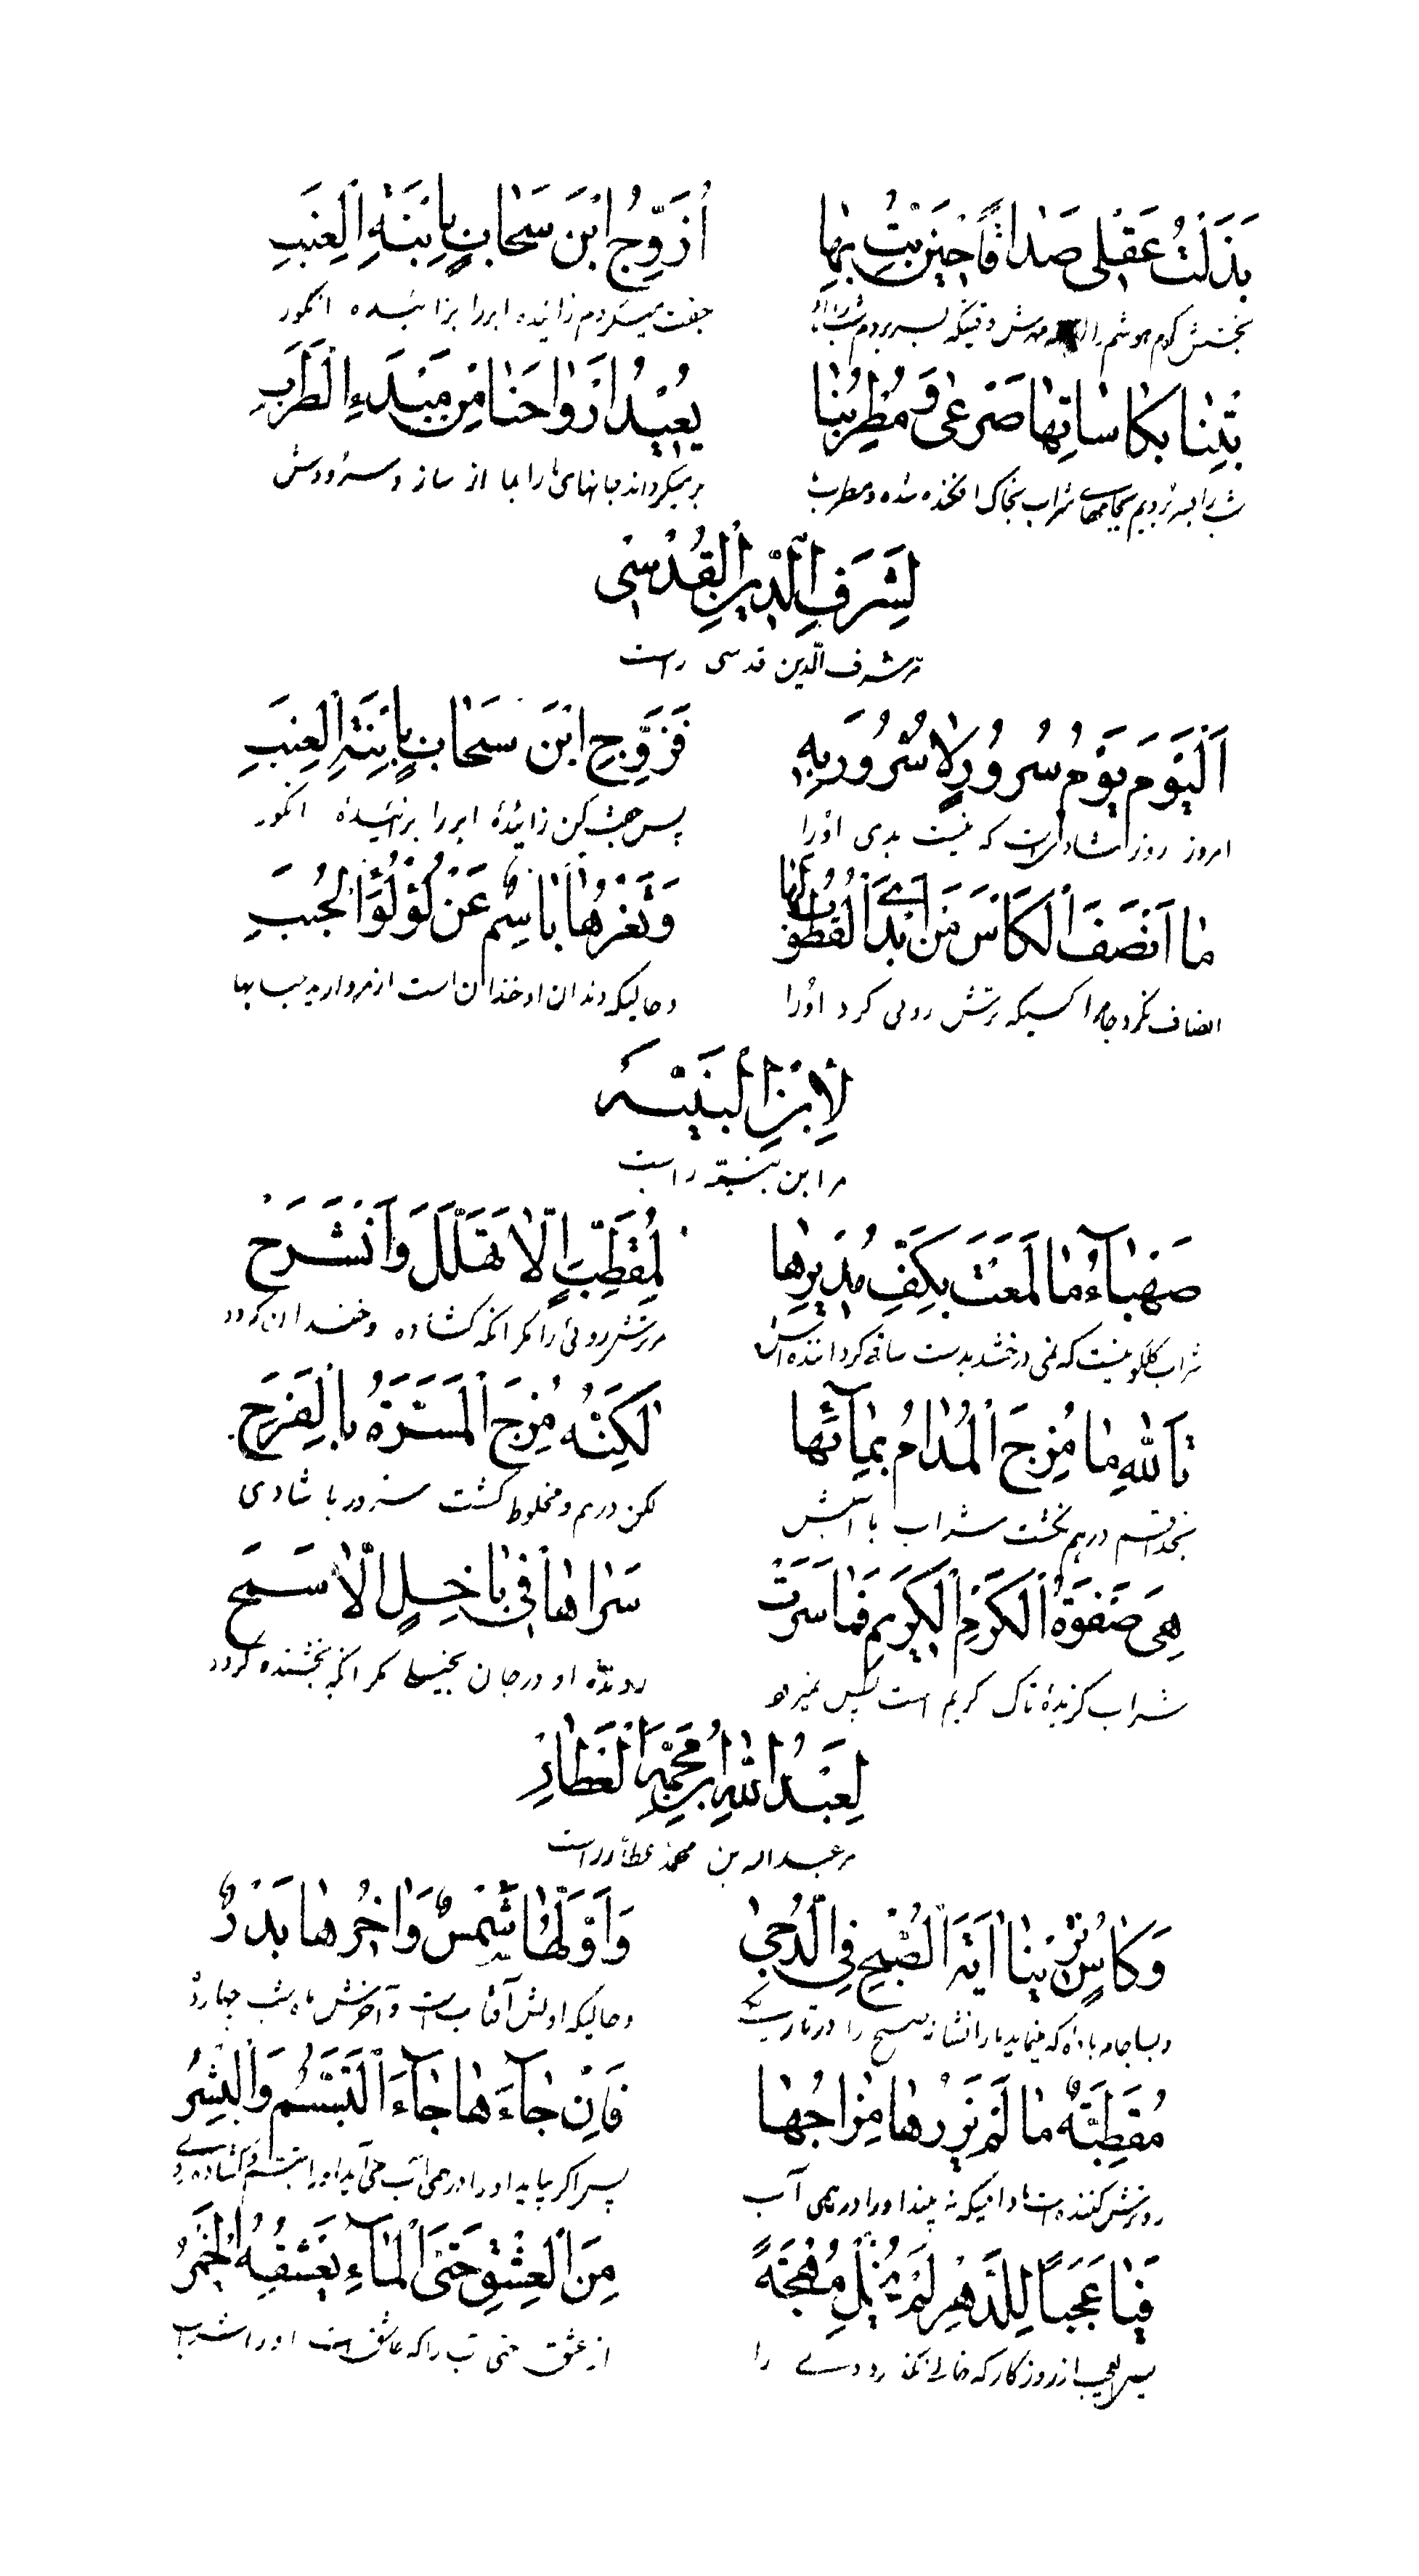 بَذَلْتُ عَقْلِی صَدَاقًا حِینَ بِتُّ بِهَا اُزَوِّجُ ابْنَ سَحَابٍ بِابْنَةِ الْعِنَبِ
بخشش کردم هوشم را مهرش وقتیکه بسر بردم شب را جفت میکردم زائیده ابر را بزائیده انگور
بِتْنَا بِکَاسَاتِهَا صَرْعٰی وَ مُطْرِبُنَا یُعِیدُ اَرْوَاحَنَا مِنْ مَبْدَءِ الْطَرَبِ
شب را بسر بردیم بجامهای شراب بخاک افکنده شده و مطرب برمیگرداند جانهای ما را بما از ساز و سرودش
لِشَرَفِ الّدِینِ الْقُدْسِی
مر شرف الّدین قدسی راست
اَلْیَوْمَ یَوْمُ سُرُورٍ لَا سُرُورَ بِهِ فَزَوِّجِ ابْنَ سَحَابٍ بِابْنَةِ الْعِنَبِ
امروز روز شادی است که نیست بدی او را پس جفت کن زائیدهٔ ابر را بزائیدهٔ انگور
مَا اَنْصَفَ الْکَاْسَ مَنْ اَبْدَی الْقُطُوبَ لَهَا وَ ثَغْرُهَا بَاسِمٌ عَنْ لُؤْلُؤِ الْحَبَبِ
انصاف نکرد جام را کسیکه ترش روئی کرد او را و حالیکه دندان او خندان است از مروارید حبابها
لِابْنِ الْنَبِیْه
مر ابن نبیّه راست
صَهْبَاءُ مَا لَمَعَتْ بِکَفِّ مُدِیرِهَا لِمُقَطِّبٍ اِلَّا تَهَلَّلَ وَانْشَرَحَ
شراب گلگونیست که نمی درخشد بدست ساقی گرداننده اش مر ترش روئی را مگر آنکه گشاده و خندان گردد
تَاَللهِ مَا مُزِجَ الْمُدَامُ بِمَآئِهَا لٰکِنَّهُ مُزِجَ الْمَسَرَّةُ بِالْفَرَحِ
بخدا قسم درهم نگشت شراب با آبش لکن درهم و مخلوط گشت سرور با شادی
هِیَ صَفْوَةُ الْکَرْمِ الْکَرِیمِ فَمَا سَرَتْ سَرَاهَا فِی بَاخِلٍ اِلَّا سَمَحَ
شراب گزیدهٔ تاک کریم است پس نمیرود روندهٔ او در جان بخیل مگر آنکه بخشنده گردد
لِعَبْدُاللهِ ابْنِ مُحَمَّدِ الْعَطَّارِ
مر عبداله بن محمد عطار راست
وَ کَاْسٍ تُرِیْنَا آیَةَ الْصُّبْحِ فِی الّدُجٰی وَ اَوَّلُهَا شَمْسٌ وَ آخِرُهَا بَدْرٌ
و بسا جام بادهٔ که مینماید ما را نشانهٔ صبح را در تاریکی و حالیکه اولش آفتاب است و آخرش ماه شب چهارده
مُقَطِّبَةٌ مَا لَمْ یَزُرْهَا مِزَاجُهَا فَاِنْ جَآءَهَا جَآءَ الْتَبَسُّمُ وَالْبِشْرُ
رو ترش کننده است مادامیکه نه بیند او را درهمی آب پس اگر بیاید او را درهمی آب می آید او را تبسّم و گشاده روی
فَیَا عَجَبًا لِلدَّهْرِ لَمْ یُخْلِ مُهْجَةً مِنَ الْعِشْقِ حَتَّی الْمَآءِ یَعْشَقُهُ الْخَمْرُ
پس ایعجب از روزگار که خالی نگذارد دلی را از عشق حتی آب را که عاشق است او را شراب